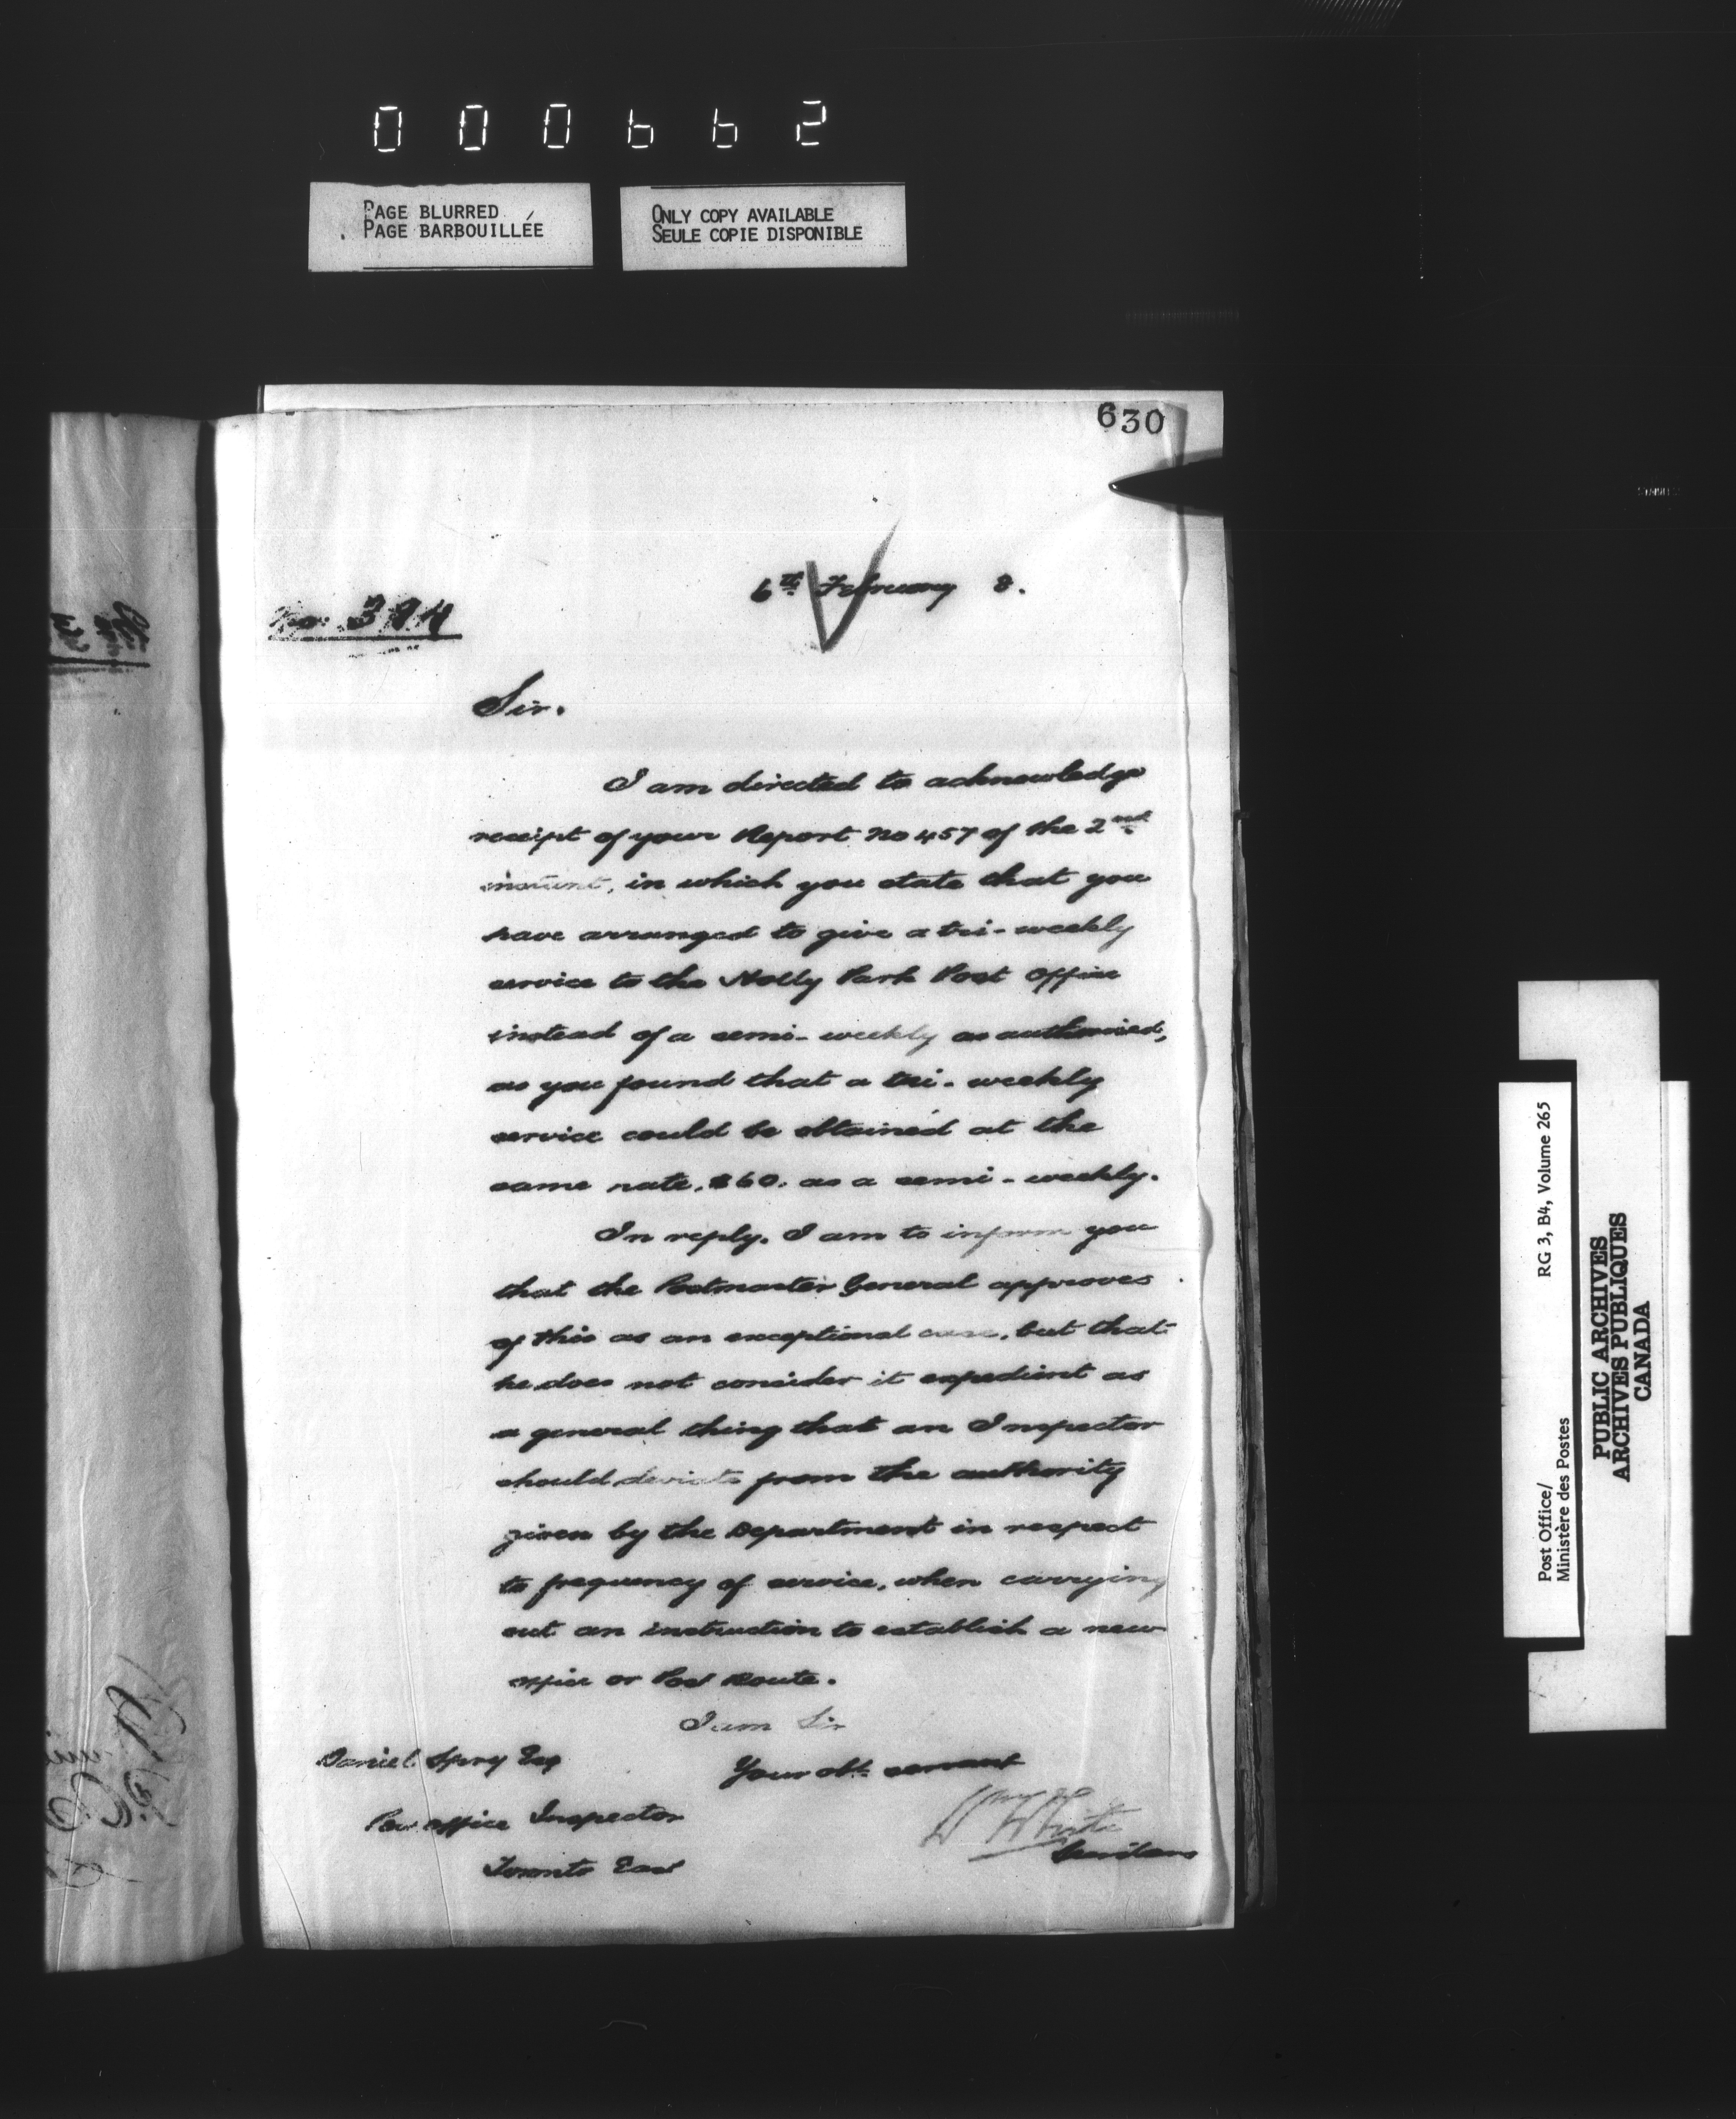 000662
PAGE BLURRED
PAGE BARBOUILLÉE
ONLY COPY AVAILABLE
SEULE COPIE DISPONIBLE
630
6th February 8.
No. 394
Sir.
I am directed to acknowledge
receipt of your Report No 457 of the 2nd
instant, in which you state that you
have arranged to give a tri-weekly
service to the Holly Park Post Office
instead of a semi-weekly as authorized,
as you found that a tri-weekly
service could be obtained at the
same rate, $60, as a semi-weekly.
In reply, I am to inform you
that the Postmaster General approves
of this as an exceptional case, but that
he does not consider it expedient as
a general thing that an Inspector
should deviate from the authority
given by the Department in respect
to frequency of service, when carrying
out an instruction to establish a new
office or Post Route.
I am Sir
Your obt. servant
Daniel Spry Esq
Post Office Inspector
Toronto East
Wm White
Secretary
Post Office/ RG 3, B4, Volume 265
Ministère des Postes
PUBLIC ARCHIVES
ARCHIVES PUBLIQUES
CANADA